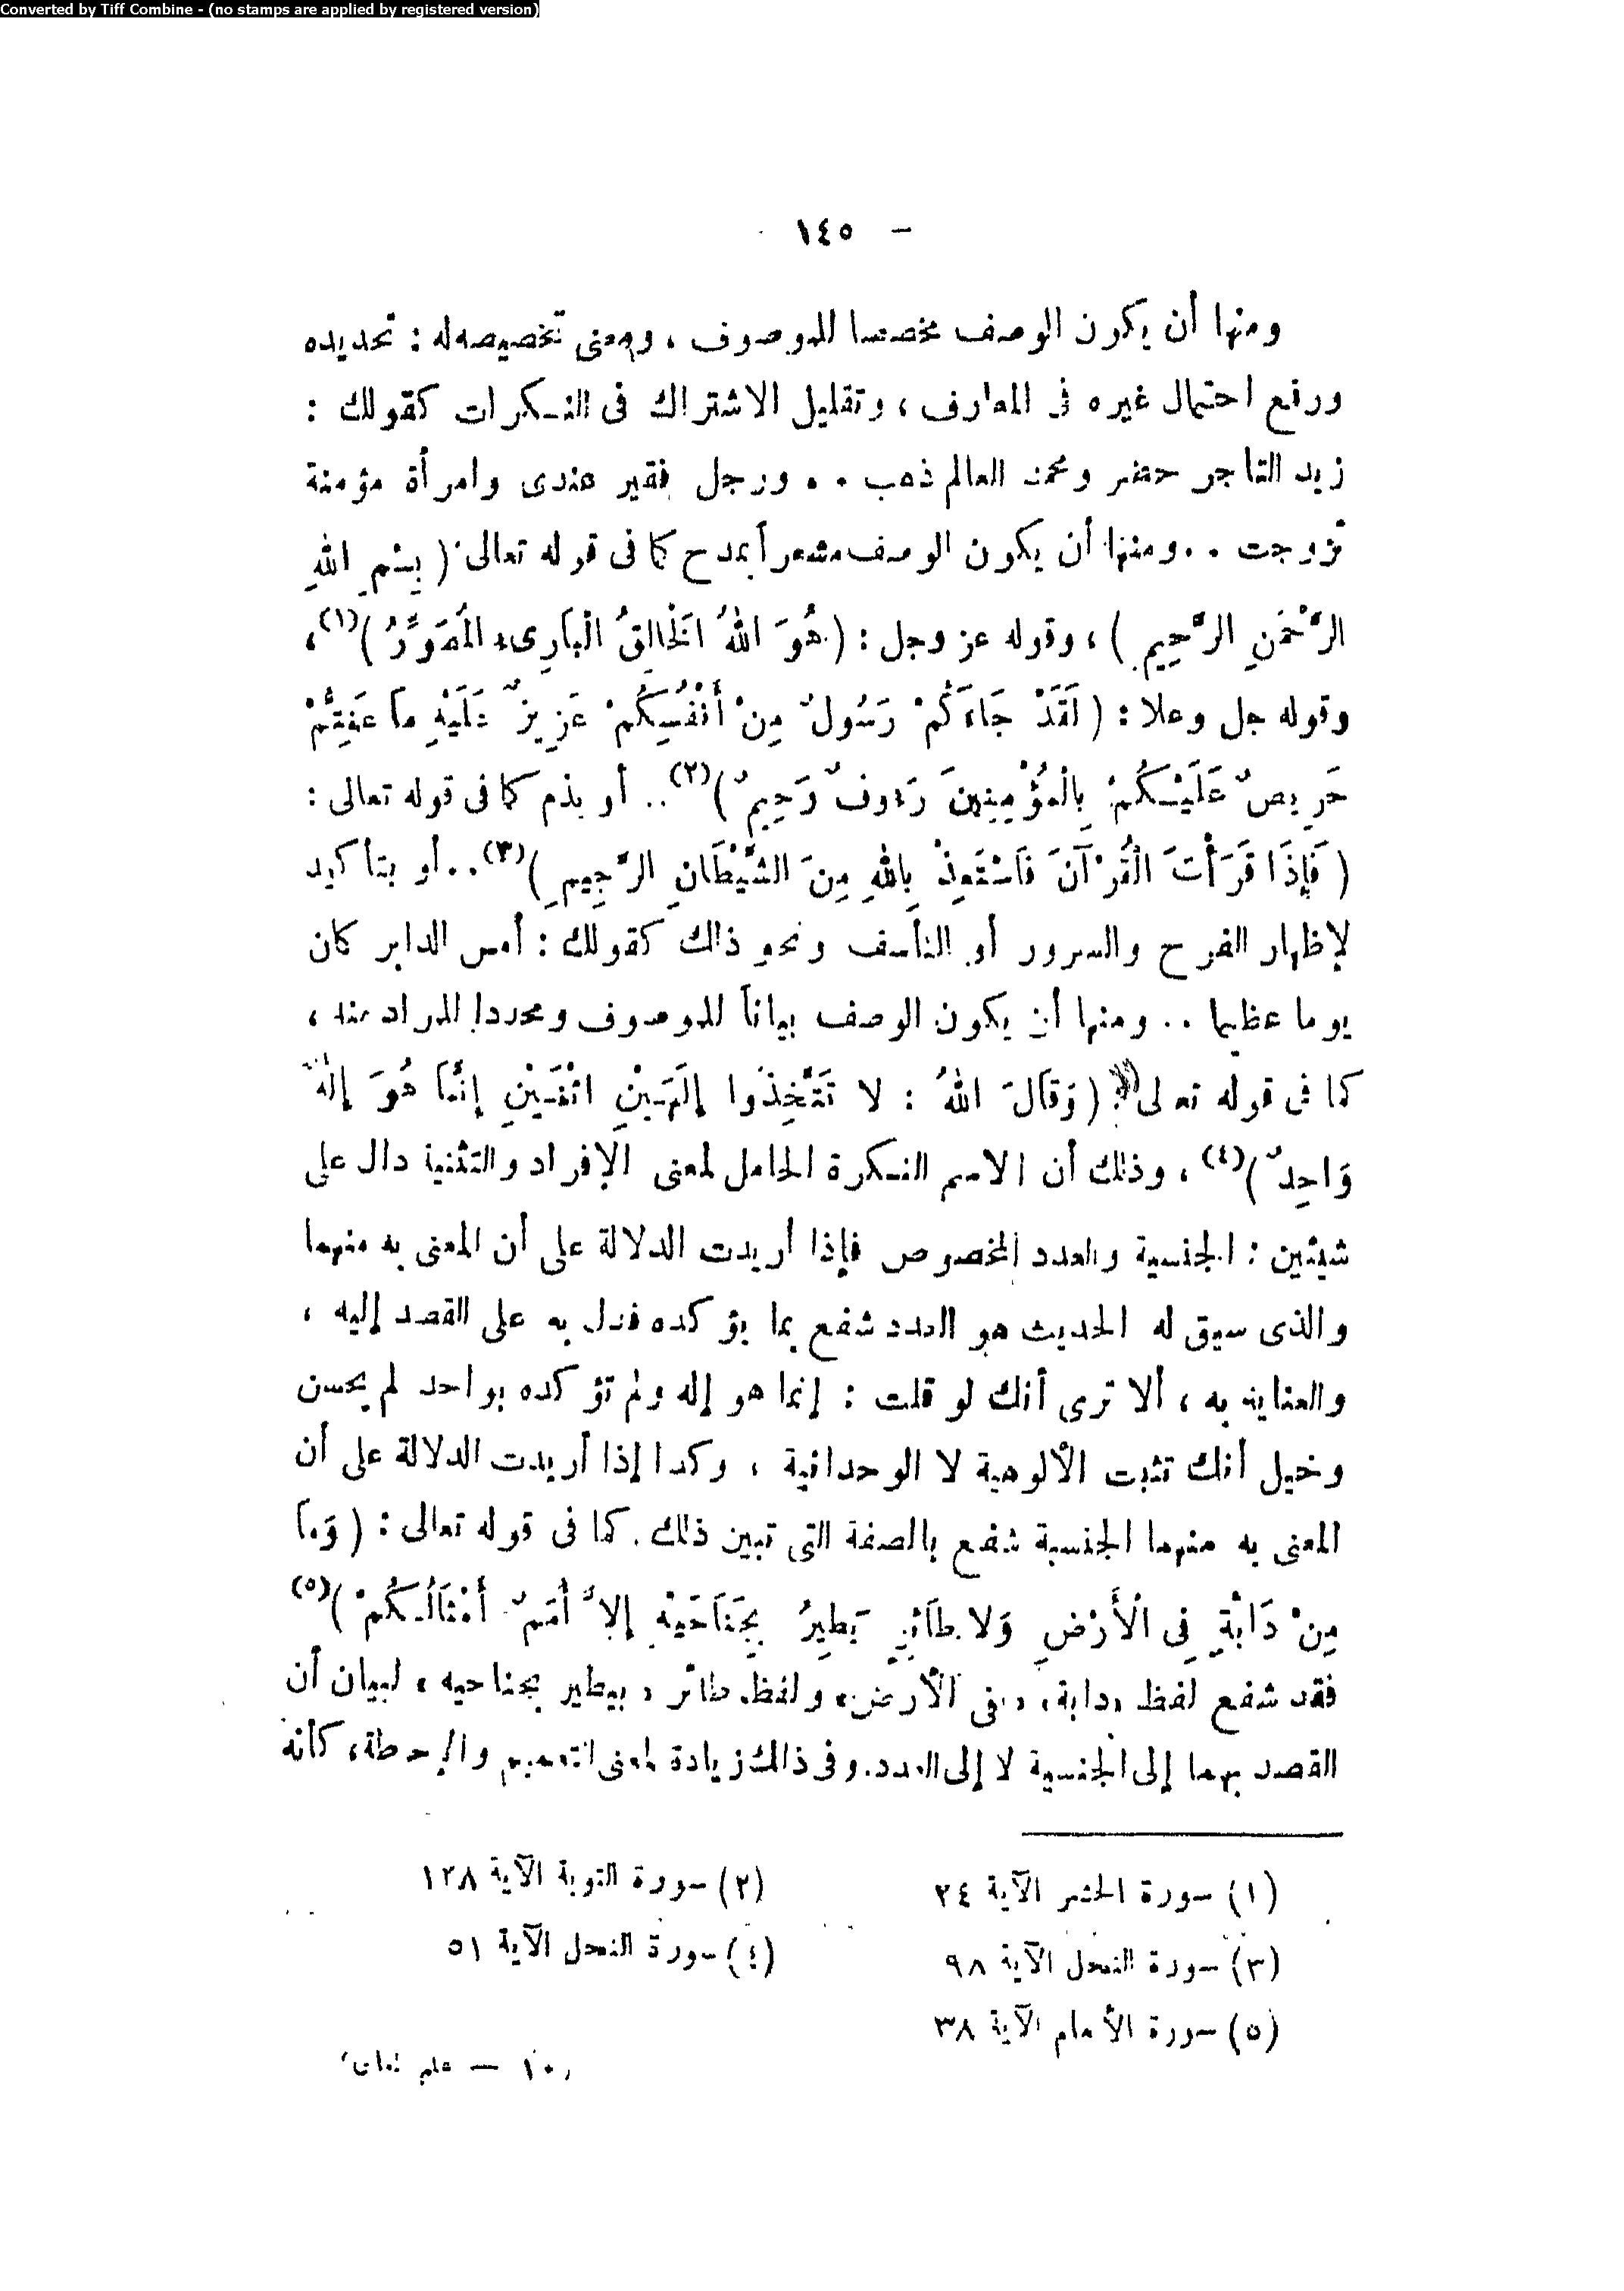 Converted by Tiff Combine - (no stamps are applied by registered version)
١٤٥ –
ومنها أن يكون الوصف مخصصا للموصوف ، ومعنى تخصيصه له : تحديده
ورفع احتمال غيره فى المعارف ، وتقليل الاشتراك فى النكرات كقولك :
زيد التاجر حضر ومحمد العالم ذهب . . ورجل فقير عندى وامرأة مؤمنة
تزوجت . . ومنها أن يكون الوصف مشعراً بمدح كما فى قوله تعالى ( بِسْمِ اللهِ
الرَّحْمَنِ الرَّحِيمِ ) ، وقوله عز وجل : ( هُوَ اللهُ الْخَالِقُ الْبَارِىءُ الْمُصَوِّرُ )(١) ،
وقوله جل وعلا : ( لَقَدْ جَاءَكُمْ رَسُولٌ مِنْ أَنْفُسِكُمْ عَزِيزٌ عَلَيْهِ مَا عَنِتُّمْ
حَرِيصٌ عَلَيْكُمْ بِالْمُؤْمِنِينَ رَءوفٌ رَحِيمٌ )(٢) . . أو بذم كما فى قوله تعالى :
( فَإِذَا قَرَأْتَ الْقُرْآنَ فَاسْتَعِذْ بِاللهِ مِنَ الشَّيْطَانِ الرَّجِيمِ )(٣) . . أو بتأكيد
لإظهار الفرح والسرور أو التأسف ونحو ذلك كقولك : أمس الدابر كان
يوما عظيما . . ومنها أن يكون الوصف بياناً للموصوف ومحددا للمراد منه ،
كما فى قوله تعالى ( وَقَالَ اللهُ : لا تَتَّخِذُوا إِلَهَيْنِ اثْنَيْنِ إِنَّمَا هُوَ إِلَهٌ
وَاحِدٌ )(٤) ، وذلك أن الاسم النكرة الحامل لمعنى الإفراد والتثنية دال على
شيئين : الجنسية والعدد المخصوص فإذا أريدت الدلالة على أن المعنى به منهما
والذى سيق له الحديث هو العدد شفع بما يؤكده فدل به على القصد إليه ،
والعناية به ، ألا ترى أنك لو قلت : إنما هو إله ولم تؤكده بواحد لم يحسن
وخيل أنك تثبت الألوهية لا الوحدانية ، وكدا إذا أريدت الدلالة على أن
المعنى به منهما الجنسية شفع بالصفة التى تبين ذلك . كما فى قوله تعالى : ( وَمَا
مِنْ دَابَّةٍ فِى الْأَرْضِ وَلا طَائِرٍ يَطِيرُ بِجَنَاحَيْهِ إِلاَّ أُمَمٌ أَمْثَالُكُمْ )(٥)
فقد شفع لفظ «دابة» «بفى الأرض» ولفظ طائر «بيطير بجناحيه» لبيان أن
القصد بهما إلى الجنسية لا إلى العدد . وفى ذلك زيادة لمعنى التعميم والإحاطة ، كأنه
(١) سورة الحشر الآية ٢٤
(٢) سورة التوبة الآية ١٢٨
(٣) سورة النحل الآية ٩٨
(٤) سورة النحل الآية ٥١
(٥) سورة الأنعام الآية ٣٨
( ١٠ – علم المعانى )